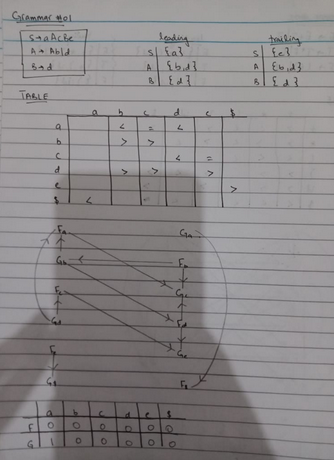 Grammar #01
S→aAcBe
A→Ab|d
B→d
leading
S {a}
A {b,d}
B {d}
trailing
S {e}
A {b,d}
B {d}
TABLE
a b c d e $
a < = <
b > >
c < =
d > > >
e >
$ <
Fa Ga
Gb Fe
Fc Gc
Gd Fd
Ge
F$
G$
a b c d e $
F 0 0 0 0 0 0
G 1 0 0 0 0 0